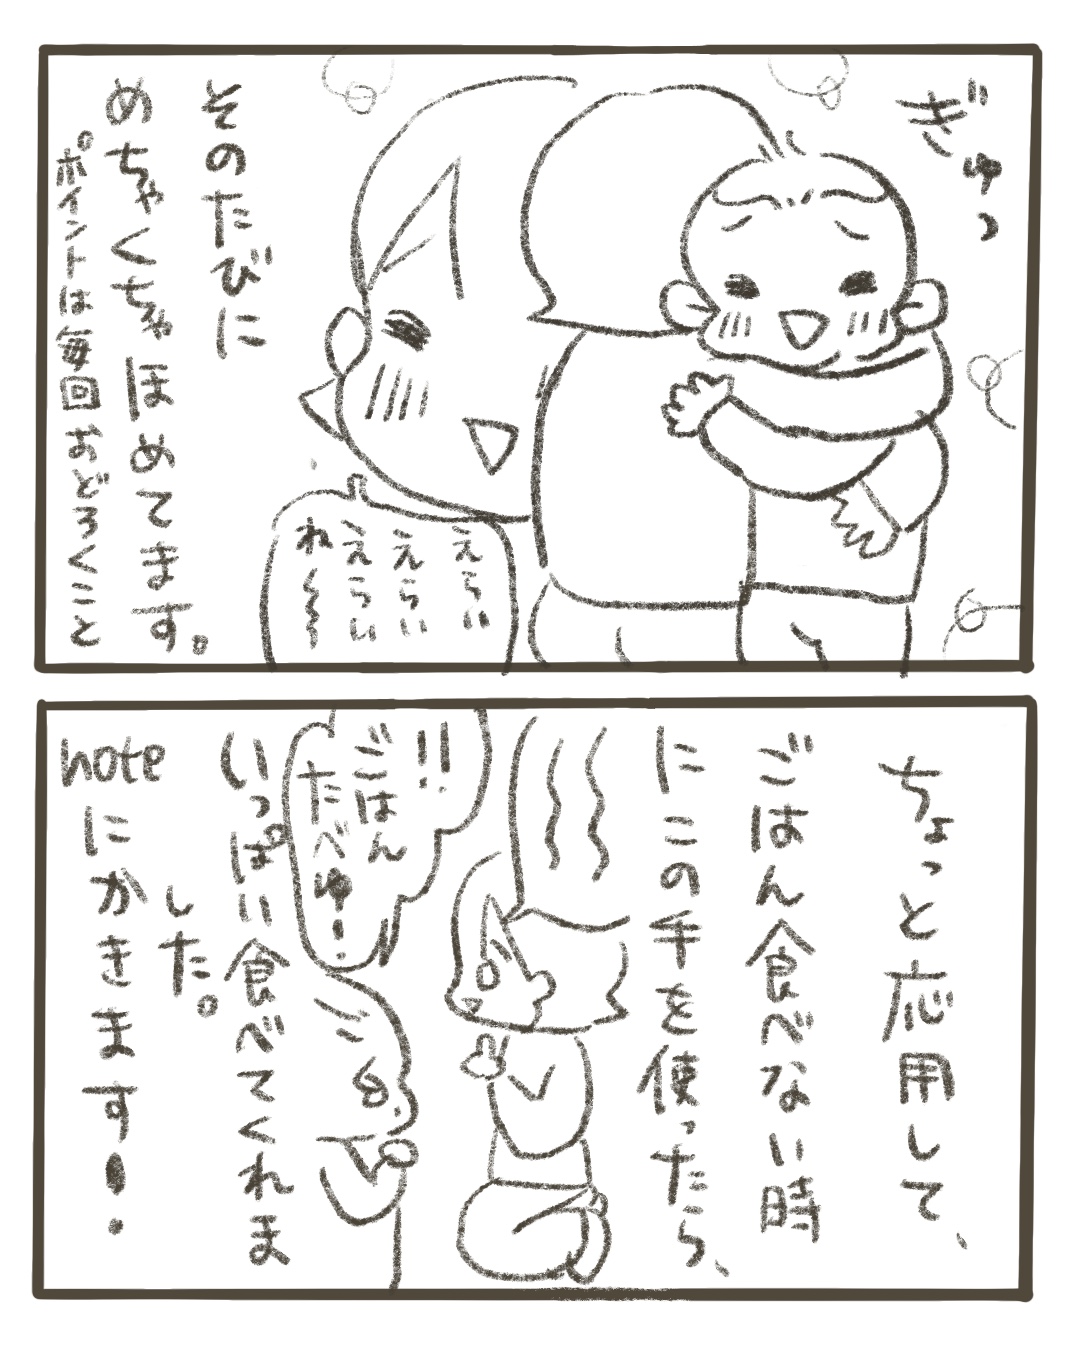 ぎゅっ
そのたびに
めちゃくちゃほめてます。
ポイントは毎回おどろくこと
えらい
えらい
えらい
ね〜〜
ちょっと応用して、
ごはん食べない時
にこの手を使ったら、
!!
ごはん
たべゆー!
いっぱい食べてくれま
した。
noteにかきます!